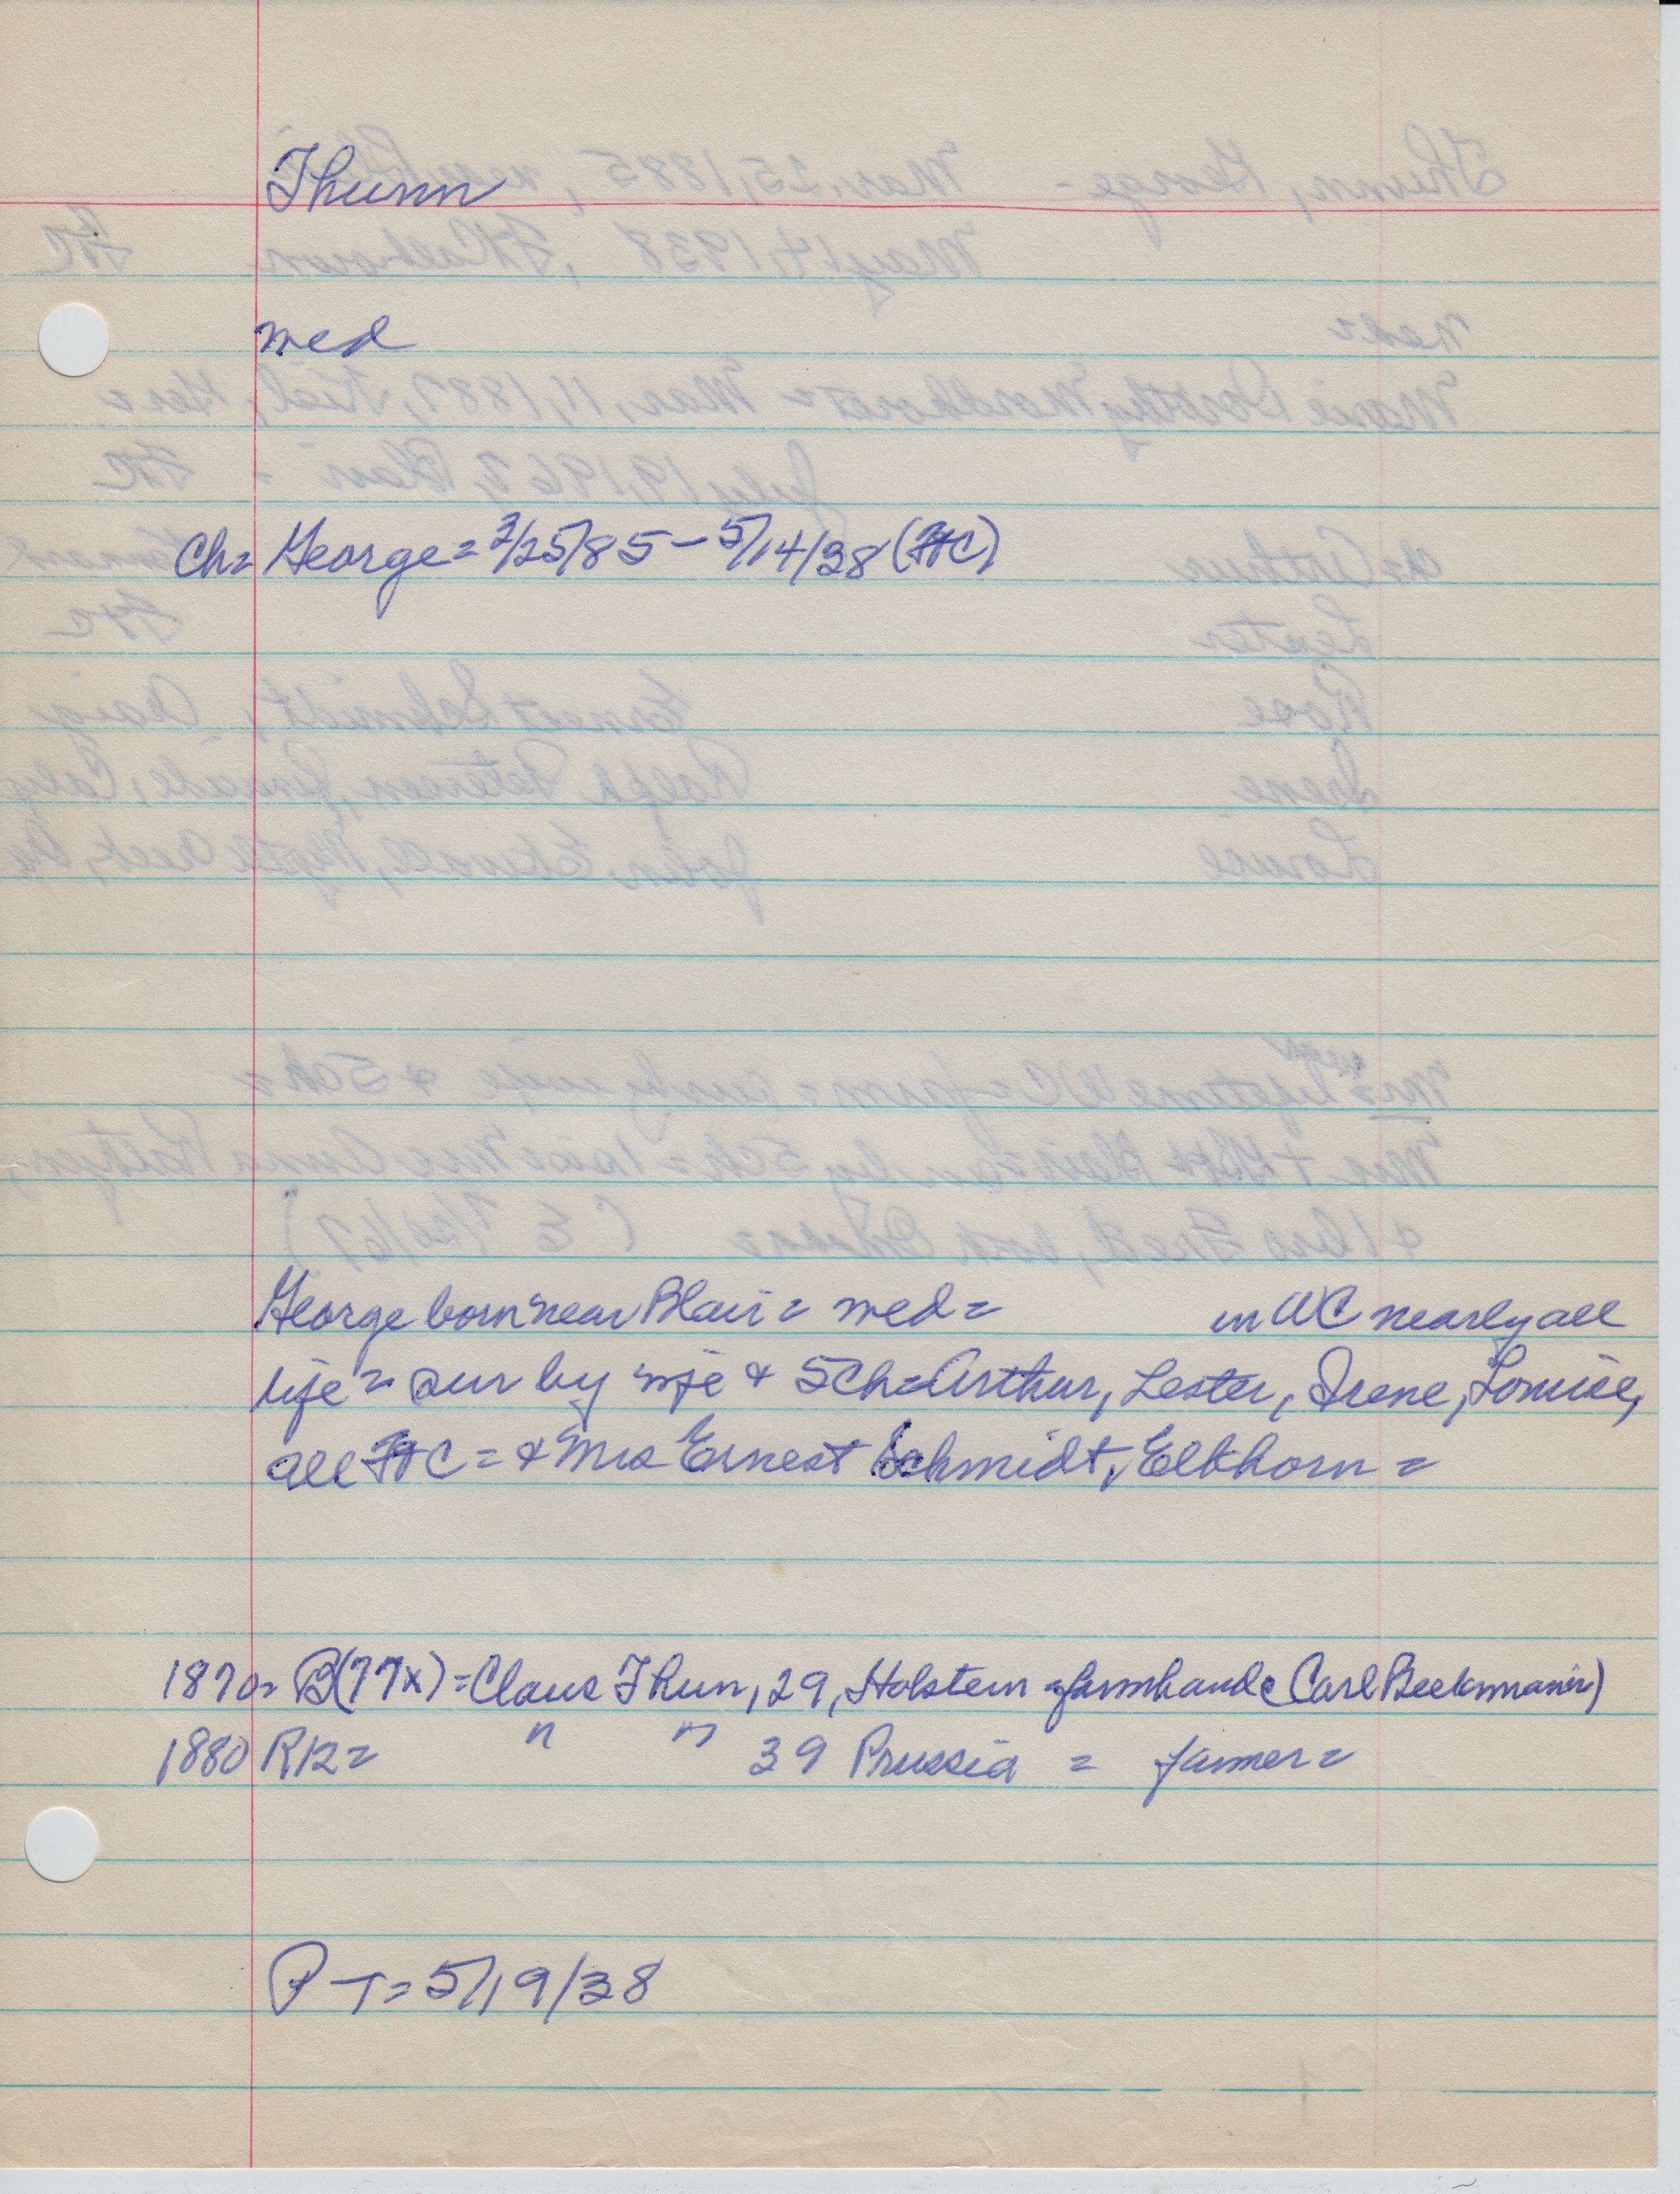 Thunn
med
Ch= George = 3/25/85 - 5/14/38 (FtC)
George born near Blair = med = in WC nearly all
life = sur by wife + 5 Ch = Arthur, Lester, Irene, Louise,
all FtC = + Mrs Ernest Schmidt, Elkhorn =
1870= B(77x) = Claus Thun, 29, Holstein = farmhand (Carl Beekmann)
1880 R12= " " 39 Prussia = farmer =
PT= 5/19/38